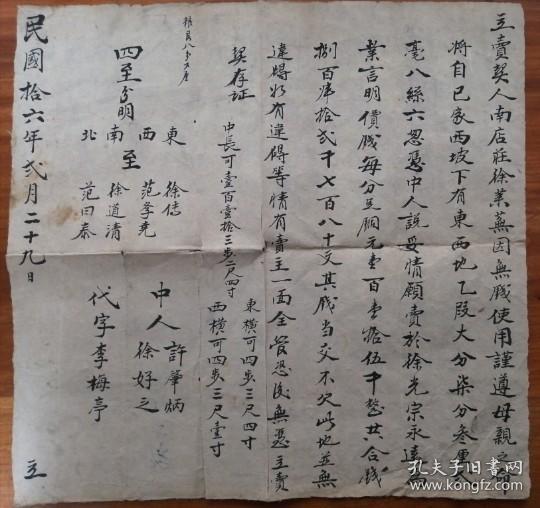 立賣契人南店莊徐業蕪因無賤使用謹遵母親之命
將自己家西坡下有東西地乙段大分柒分叁厘
毫八絲六忽憑中人說妥情願賣於徐光宗永遠
業言明價賤每分足銅元壹百壹拾伍千整共合賤
捌百肆拾貳千七百八十文其賤當交不欠此地並無
違碍如有違碍等情有賣主一面全管恐後無憑立賣
契存証
中長可壹百壹拾三步二尺四寸
東橫可四步三尺四寸
西橫可四步三尺壹寸
粮員八分
四至分明
東 徐
西 至 范孝堯
南 徐道清
北 范曰泰
中人 許肇炳
徐好之
代字李梅亭
民國拾六年貳月二十九日
立
孔夫子旧书网